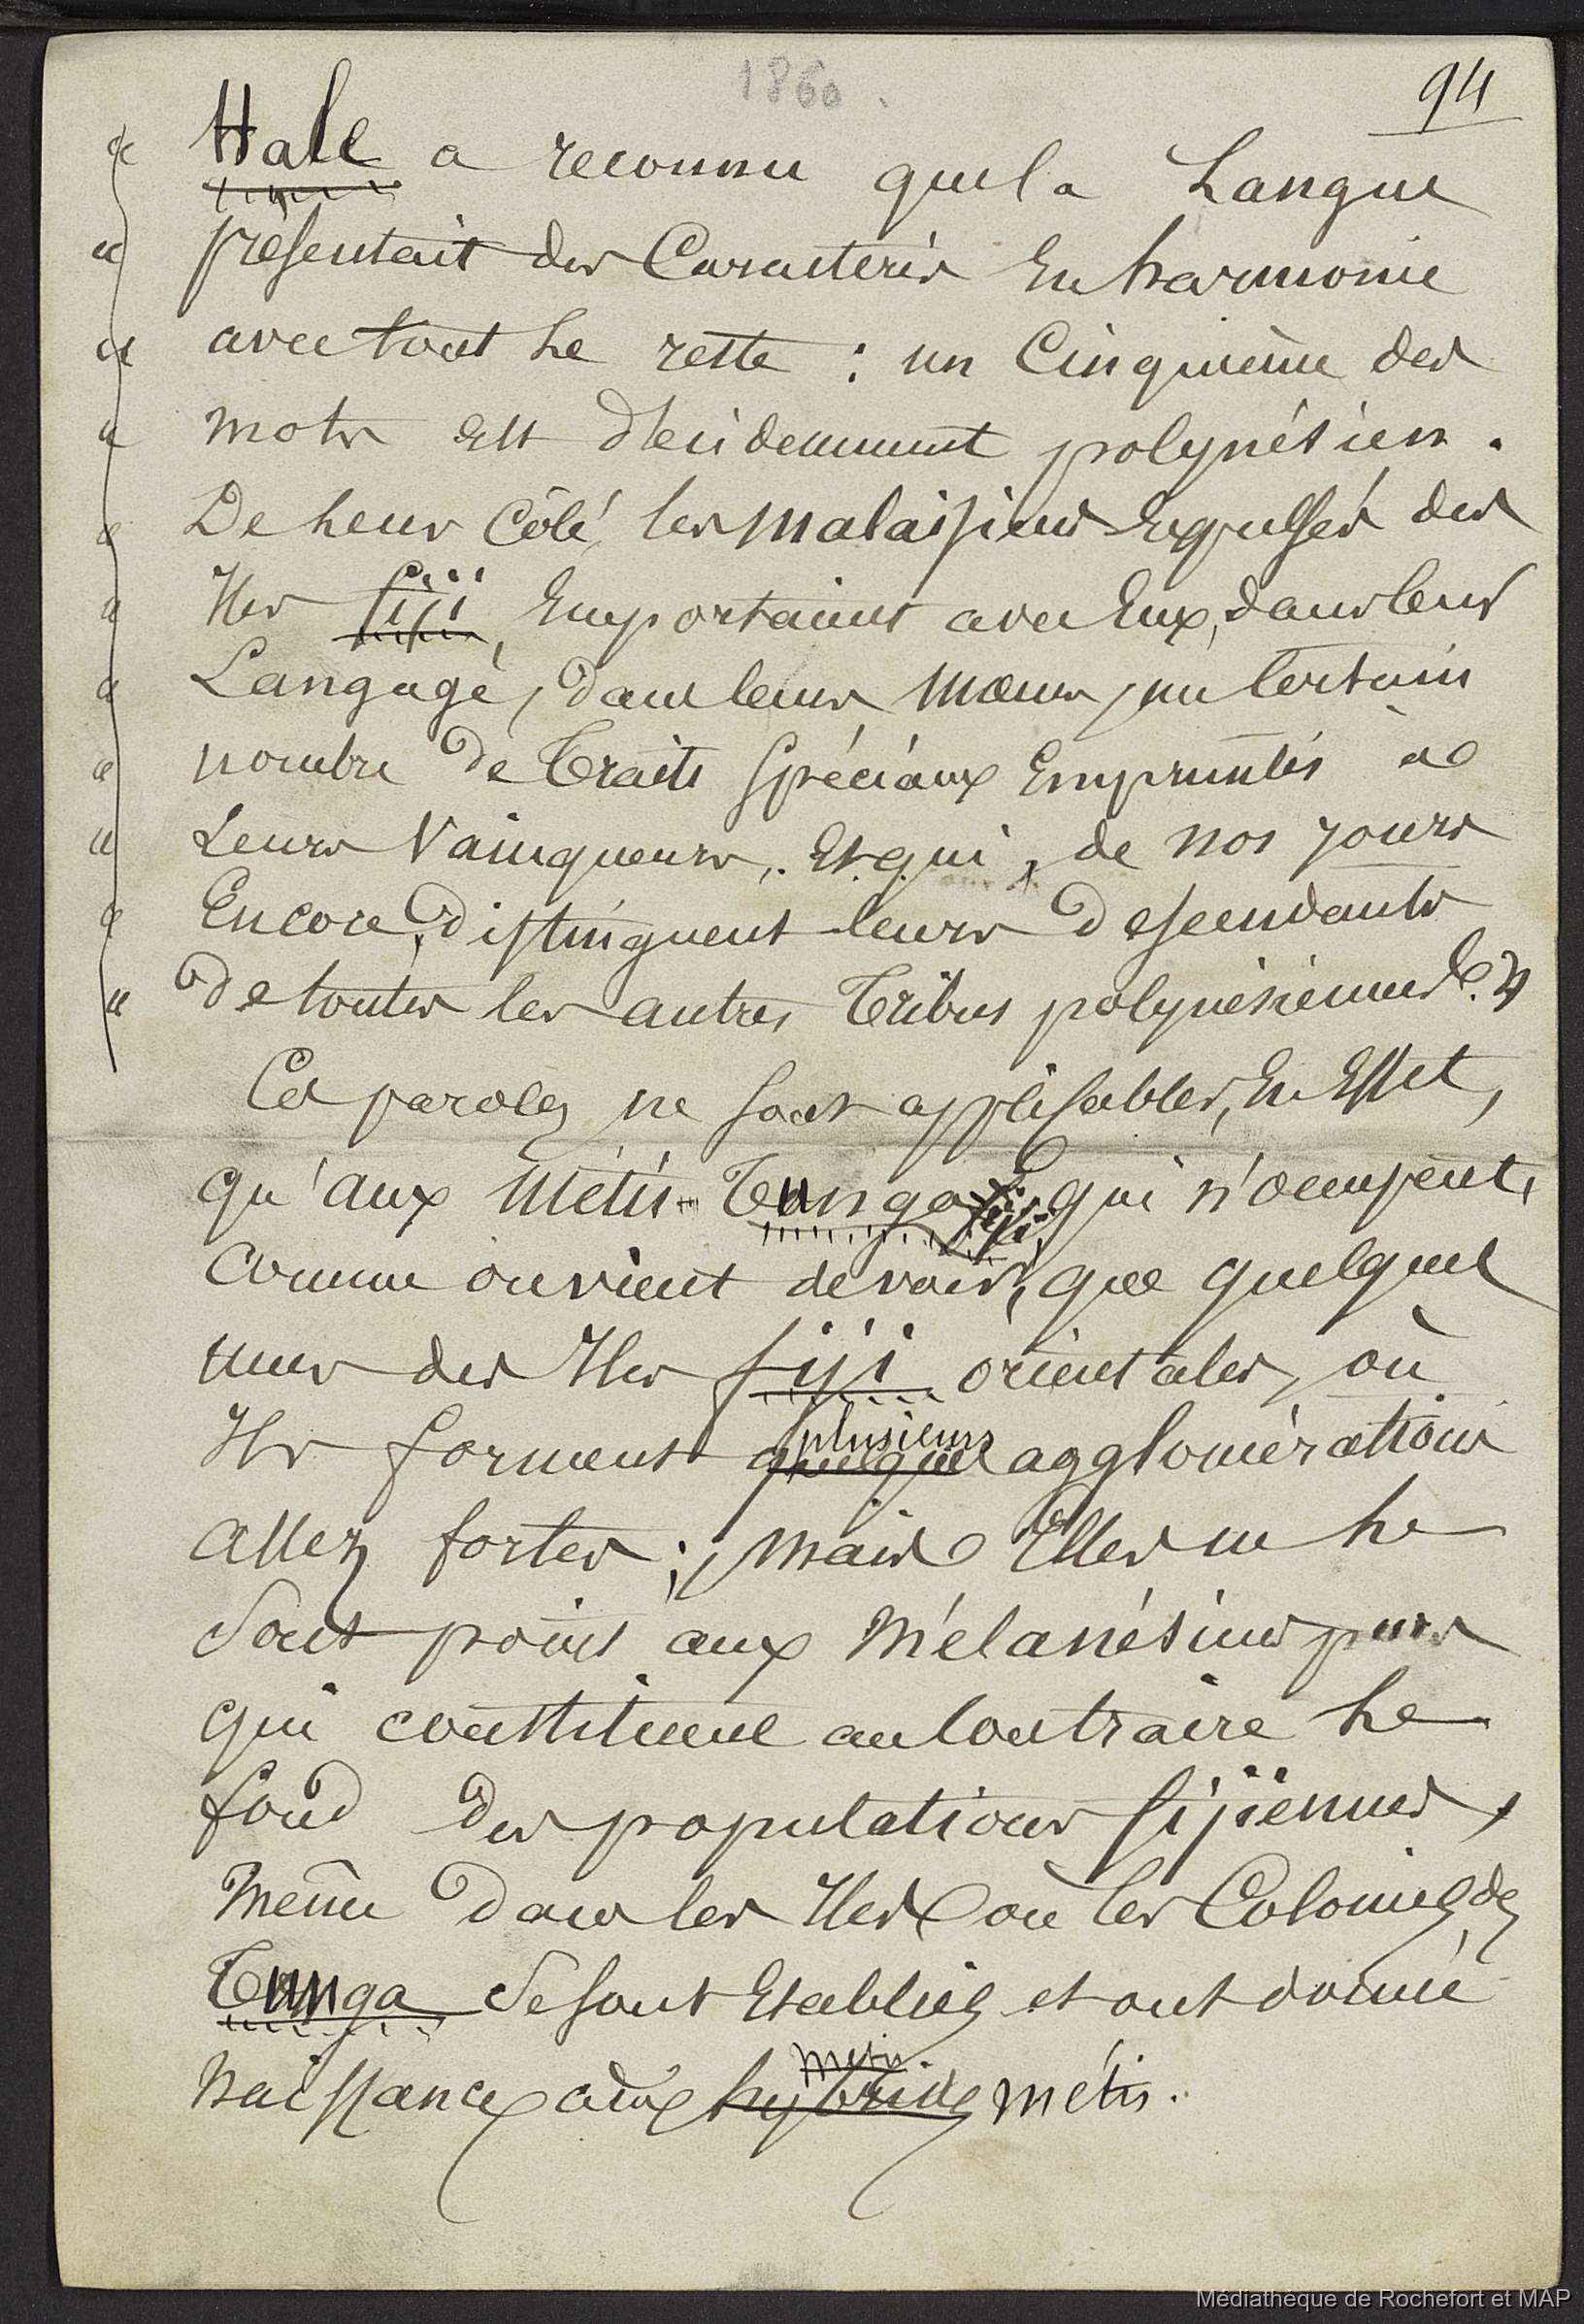 1860.
94
« Hale a reconnu que la Langue
« présentait des Caractères En harmonie
« avec tout le reste : un Cinquième des
« mots est décidemment polynésien.
« De leur Côté, les Malaisiens Expulsés des
« Iles fiji, Emportaient avec Eux, dans leur
« Langage, dans leurs mœurs, un Certain
« nombre de Traits Spéciaux Empruntés à
« Leurs Vainqueurs, Et qui, de nos jours
« Encore, distinguent leurs descendants
« de toutes les autres Tribus polynésiennes. »
Ces paroles ne sont applicables, En Effet,
qu'aux Métis Tunga-fiji, qui n'occupent,
comme on vient de voir, que quelques
unes des Iles fiji orientales, où
plusieurs
Ils forment quelques agglomérations
assez fortes ; mais Elles ne le
Sont point aux Mélanésiens purs
qui constituent au Contraire le
fond des populations fijiennes,
même dans les Iles où les Colonies de
Tunga se sont Etablies et ont donné
métis
Naissance aux hybrides métis.
Médiathèque de Rochefort et MAP